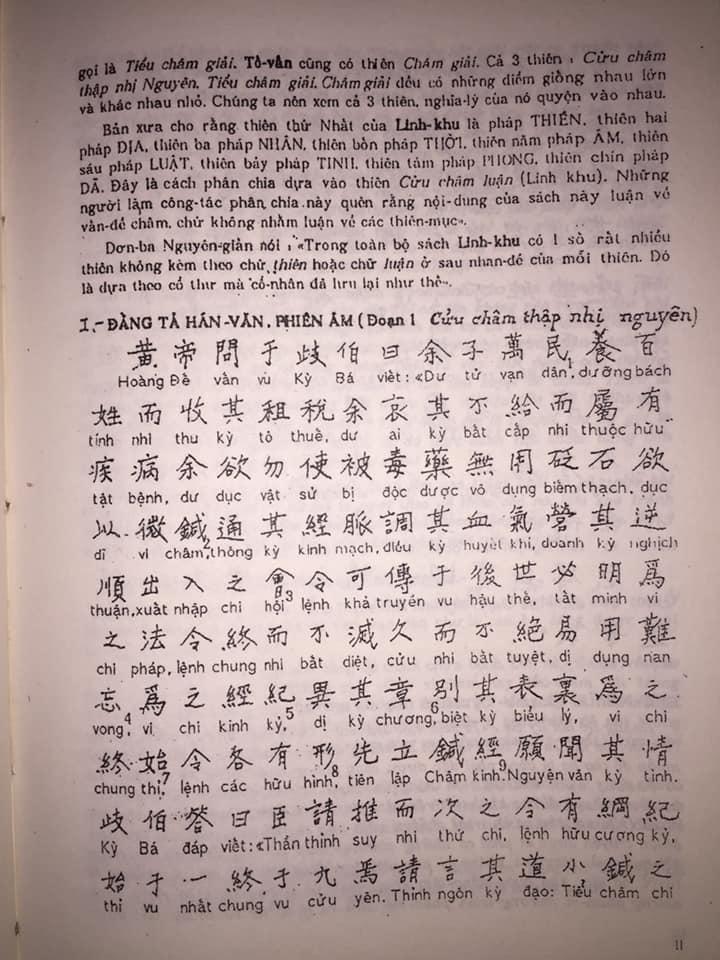 gọi là Tiểu châm giải. Tố-vấn cũng có thiên Châm giải. Cả 3 thiên : Cửu châm
thập nhị Nguyên, Tiểu châm giải, Châm giải đều có những điểm giống nhau lớn
và khác nhau nhỏ. Chúng ta nên xem cả 3 thiên, nghĩa-lý của nó quyện vào nhau.
Bản xưa cho rằng thiên thứ Nhất của Linh-khu là pháp THIÊN, thiên hai
pháp DỊA, thiên ba pháp NHÂN, thiên bốn pháp THỜI, thiên năm pháp ÂM, thiên
sáu pháp LUẬT, thiên bảy pháp TINH, thiên tám pháp PHONG, thiên chín pháp
DÃ. Đây là cách phân chia dựa vào thiên Cửu châm luận (Linh khu). Những
người làm công-tác phân chia này quên rằng nội-dung của sách này luận về
vấn-đề châm, chứ không nhằm luận về các thiên-mục».
Dơn-ba Nguyên-giản nói : «Trong toàn bộ sách Linh-khu có 1 số rất nhiều
thiên không kèm theo chữ thiên hoặc chữ luận ở sau nhan-đề của mỗi thiên. Dó
là dựa theo cổ thư mà cổ-nhân đã lưu lại như thế».
I.- ĐẰNG TẢ HÁN-VĂN, PHIÊN ÂM (Đoạn 1 Cửu châm thập nhị nguyên)
黃帝問于歧伯曰余子萬民養百
Hoàng Đế vấn vu Kỳ Bá viết : «Dư tử vạn dân,1 dưỡng bách
姓而收其租稅余哀其不給而屬有
tính nhi thu kỳ tô thuế, dư ai kỳ bất cấp nhi thuộc hữu
疾病余欲勿使被毒藥無用砭石欲
tật bệnh, dư dục vật sử bị độc dược vô dụng biêm thạch, dục
以微鍼通其經脈調其血氣營其逆
dĩ vi châm,2 thông kỳ kinh mạch, điều kỳ huyết khí, doanh kỳ nghịch
順出入之會令可傳于後世必明爲
thuận, xuất nhập chi hội3 lệnh khả truyền vu hậu thế, tất minh vi
之法令終而不滅久而不絕易用難
chi pháp, lệnh chung nhi bất diệt, cửu nhi bất tuyệt, dị dụng nan
忘爲之經紀異其章別其表裏爲之
vong,4 vi chi kinh kỷ,5 dị kỳ chương,6 biệt kỳ biểu lý, vi chi
終始令各有形先立鍼經願聞其情
chung thỉ,7 lệnh các hữu hình,8 tiên lập Châm kinh.9 Nguyện văn kỳ tình.
歧伯答曰臣請推而次之令有綱紀
Kỳ Bá đáp viết : «Thần thỉnh suy nhi thứ chi, lệnh hữu cương kỷ,
始于一終于九焉請言其道小鍼之
thỉ vu nhất chung vu cửu yên. Thỉnh ngôn kỳ đạo: Tiểu châm chi
11